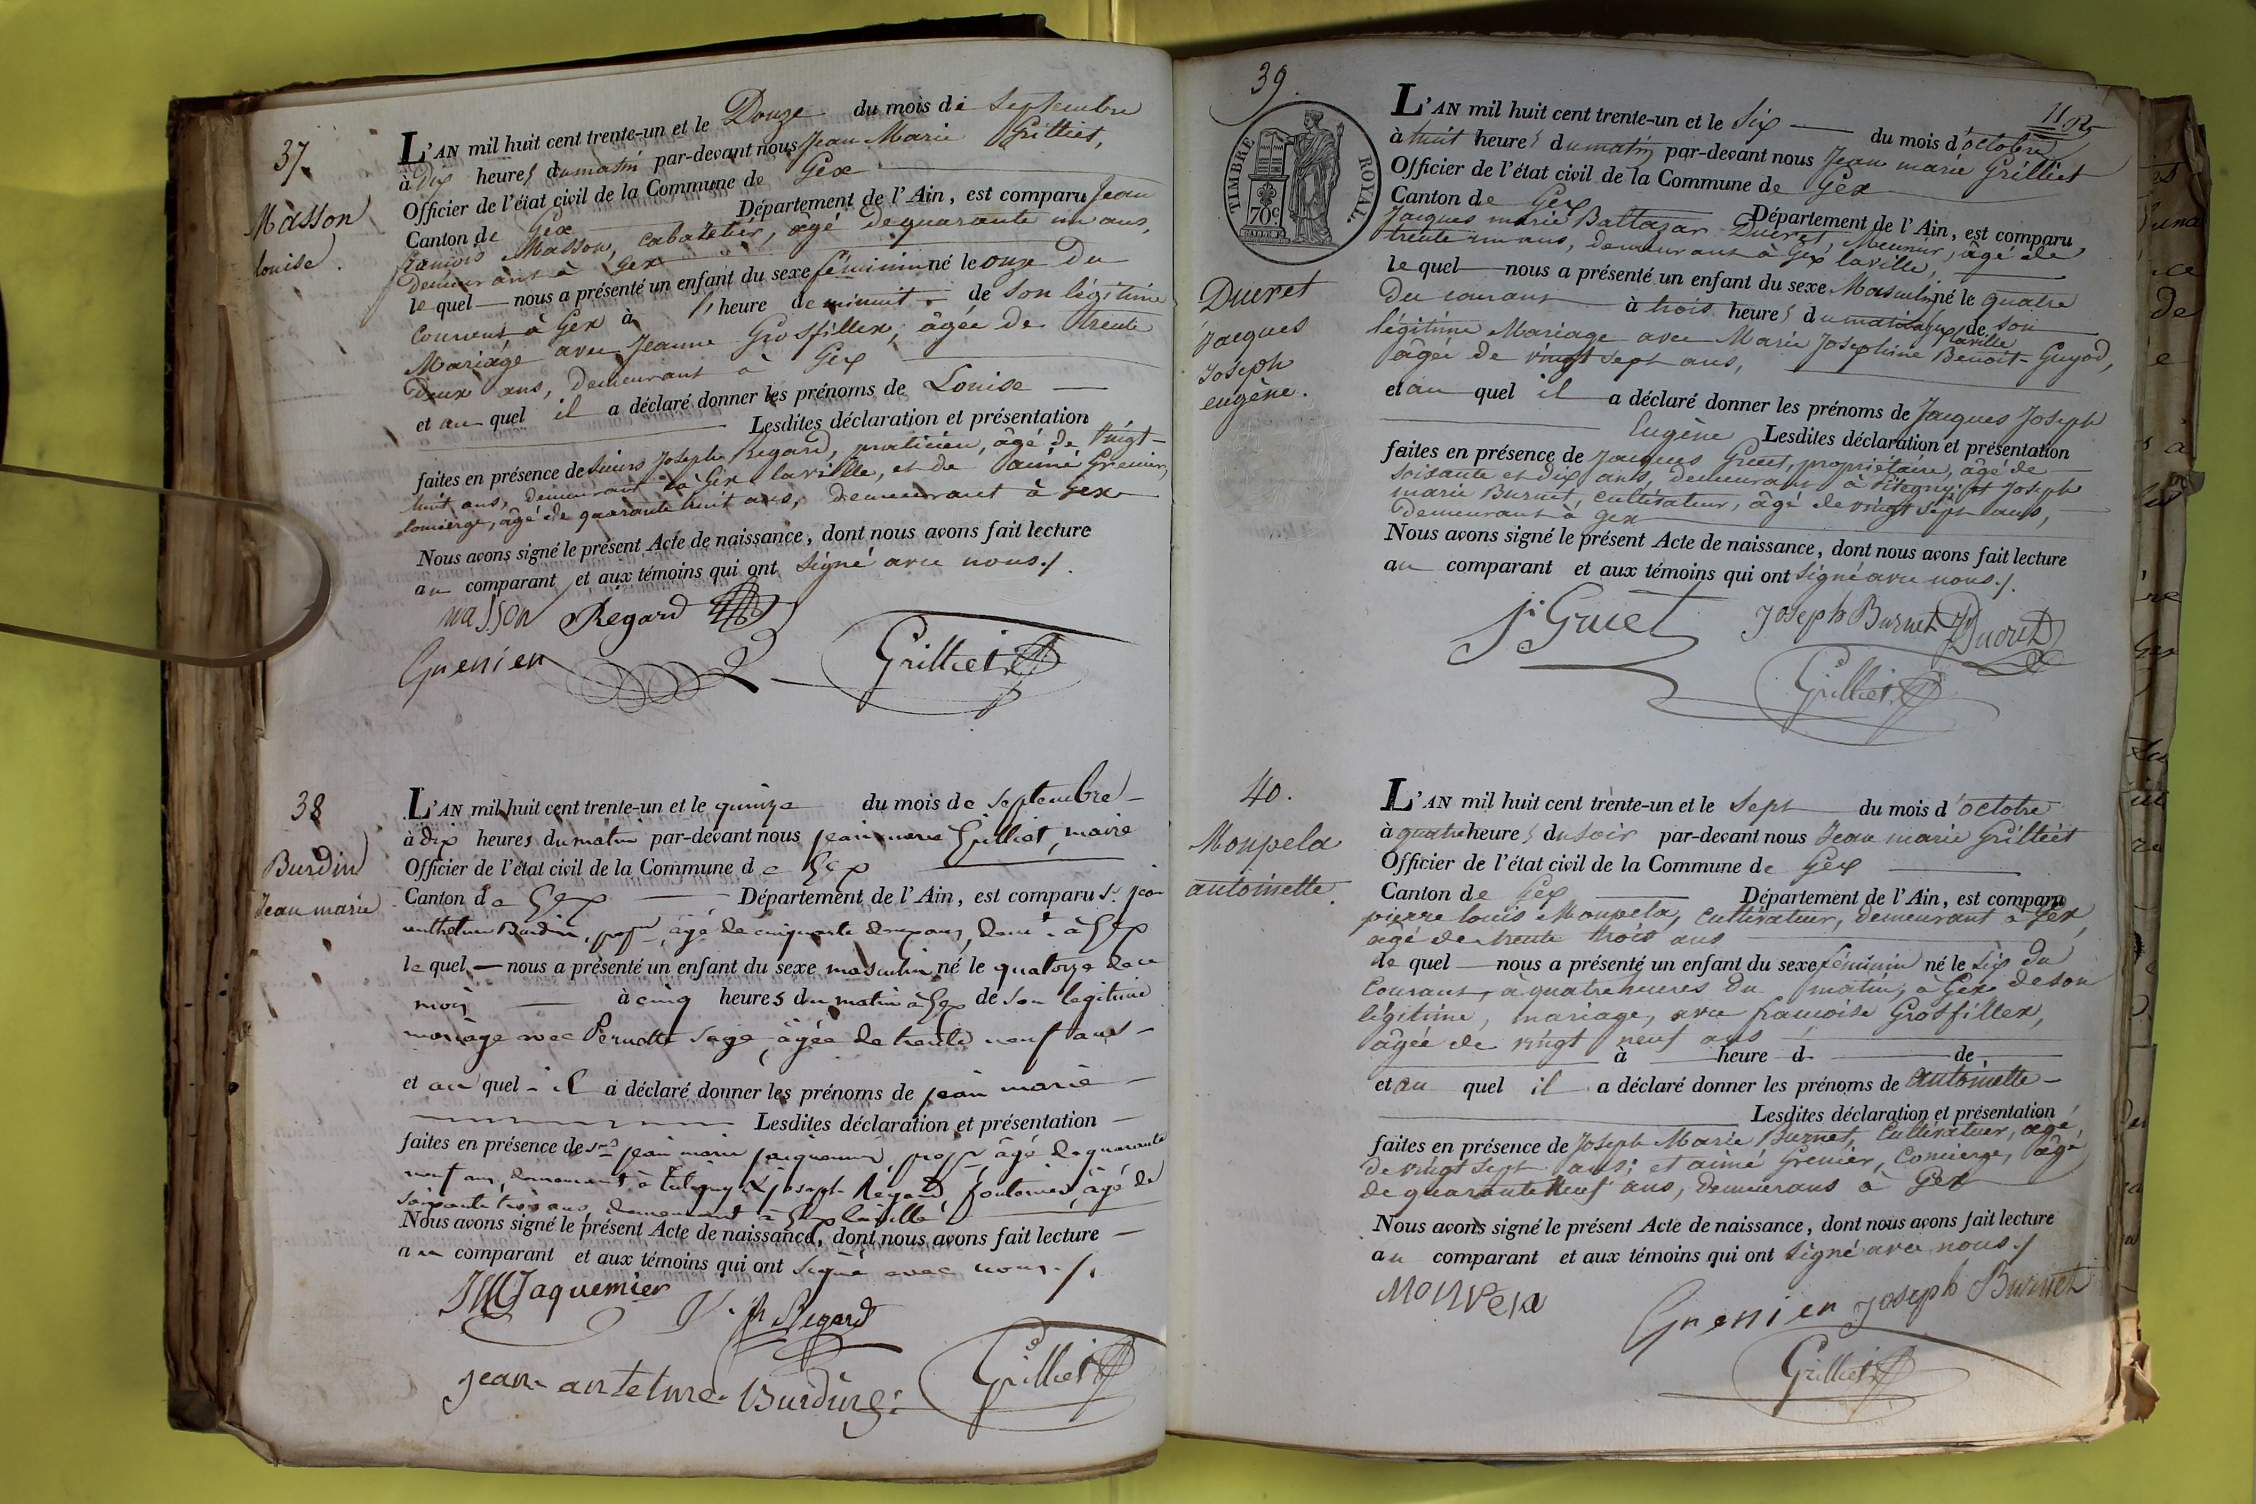 37.
Masson
louise.
L'AN mil huit cent trente-un et le Douze du mois de Septembre
à Dix heures du matin par-devant nous Jean Marie Grilliet,
Officier de l'état civil de la Commune de Gex
Canton de Gex Département de l'Ain, est comparu Jean
francois Masson, cabaretier, âgé de quarante un ans,
demeurant à Gex
le quel nous a présenté un enfant du sexe féminin né le onze du
courent à Gex à heure de minuit de son légitime
Mariage avec Jeanne Grosfillex, âgée de trente
Deux ans, demeurant à Gex
et au quel il a déclaré donner les prénoms de Louise
Lesdites déclaration et présentation
faites en présence de Sieurs Joseph Regard, praticien, âgé de Vingt-
huit ans, demeurant à Gex la ville, et de aimé Grenier,
concierge, âgé de quarante huit ans, demeurant à Gex
Nous avons signé le présent Acte de naissance, dont nous avons fait lecture
au comparant et aux témoins qui ont Signé avec nous./.
masson Regard
Grenier Grilliet
38
Burdin
Jean marie
L'AN mil huit cent trente-un et le quinze du mois de Septembre
à dix heures du matin par-devant nous jean marie Grilliet, maire
Officier de l'état civil de la Commune de Gex
Canton de Gex Département de l'Ain, est comparu Sr. jean
anthelme Burdin, âgé de cinquante deux ans, à Gex
le quel nous a présenté un enfant du sexe masculin né le quatorze de ce
mois à cinq heures du matin à Gex de son legitime
mariage avec Pernette Sage, âgée de trente neuf ans
et au quel il a déclaré donner les prénoms de jean marie
Lesdites déclaration et présentation
faites en présence de Srs jean marie jaiquemier, âgé de quarante
neuf ans, demeurant à et joseph Regard, fontenier, âgé de
soixante trois ans, demeurant à Gex la ville
Nous avons signé le présent Acte de naissance, dont nous avons fait lecture
au comparant et aux témoins qui ont signé avec nous./.
JMJaquemier
Jh Regard
jean antelme Burdin Grilliet
39.
TIMBRE ROYAL.
70c.
Ducret
jacques
joseph
eugène.
L'AN mil huit cent trente-un et le Six du mois d'octobre
à huit heures du matin par-devant nous Jean marie Grilliet
Officier de l'état civil de la Commune de Gex
Canton de Gex Département de l'Ain, est comparu
Jacques marie Baltazar Ducret, Meunier, âgé de
trente un ans, demeurant à Gex la ville,
le quel nous a présenté un enfant du sexe Masculin né le quatre
du courant à trois heures du matin à Gex la ville de son
légitime Mariage avec Marie Joséphine Benoit-Guyod,
âgée de vingt sept ans,
et au quel il a déclaré donner les prénoms de Jacques Joseph
Eugène Lesdites déclaration et présentation
faites en présence de Jacques Gruet, propriétaire, âgé de
soixante et dix ans, demeurant à et Joseph
marie Burnet, cultivateur, âgé de vingt sept ans,
demeurant à Gex
Nous avons signé le présent Acte de naissance, dont nous avons fait lecture
au comparant et aux témoins qui ont Signé avec nous./.
Joseph Burnet Ducret
Grilliet
40.
Monpela
antoinette.
L'AN mil huit cent trente-un et le Sept du mois d'octobre
à quatre heures du soir par-devant nous Jean marie Grilliet
Officier de l'état civil de la Commune de Gex
Canton de Gex Département de l'Ain, est comparu
pierre louis Monpela, cultivateur, demeurant à Gex,
âgé de trente trois ans
le quel nous a présenté un enfant du sexe féminin né le six du
Courant, à quatre heures du matin, à Gex de son
légitime, mariage, avec francoise Grosfillex,
âgée de vingt neuf ans
à heure d de
et au quel il a déclaré donner les prénoms de antoinette
Lesdites déclaration et présentation
faites en présence de Joseph Marie Burnet, Cultivateur, agé,
de vingt sept ans; et aimé Grenier, Concierge, âgé
de quarante neuf ans, demeurans à Gex
Nous avons signé le présent Acte de naissance, dont nous avons fait lecture
au comparant et aux témoins qui ont Signé avec nous./
Monpela
Grenier joseph Burnet
Grilliet